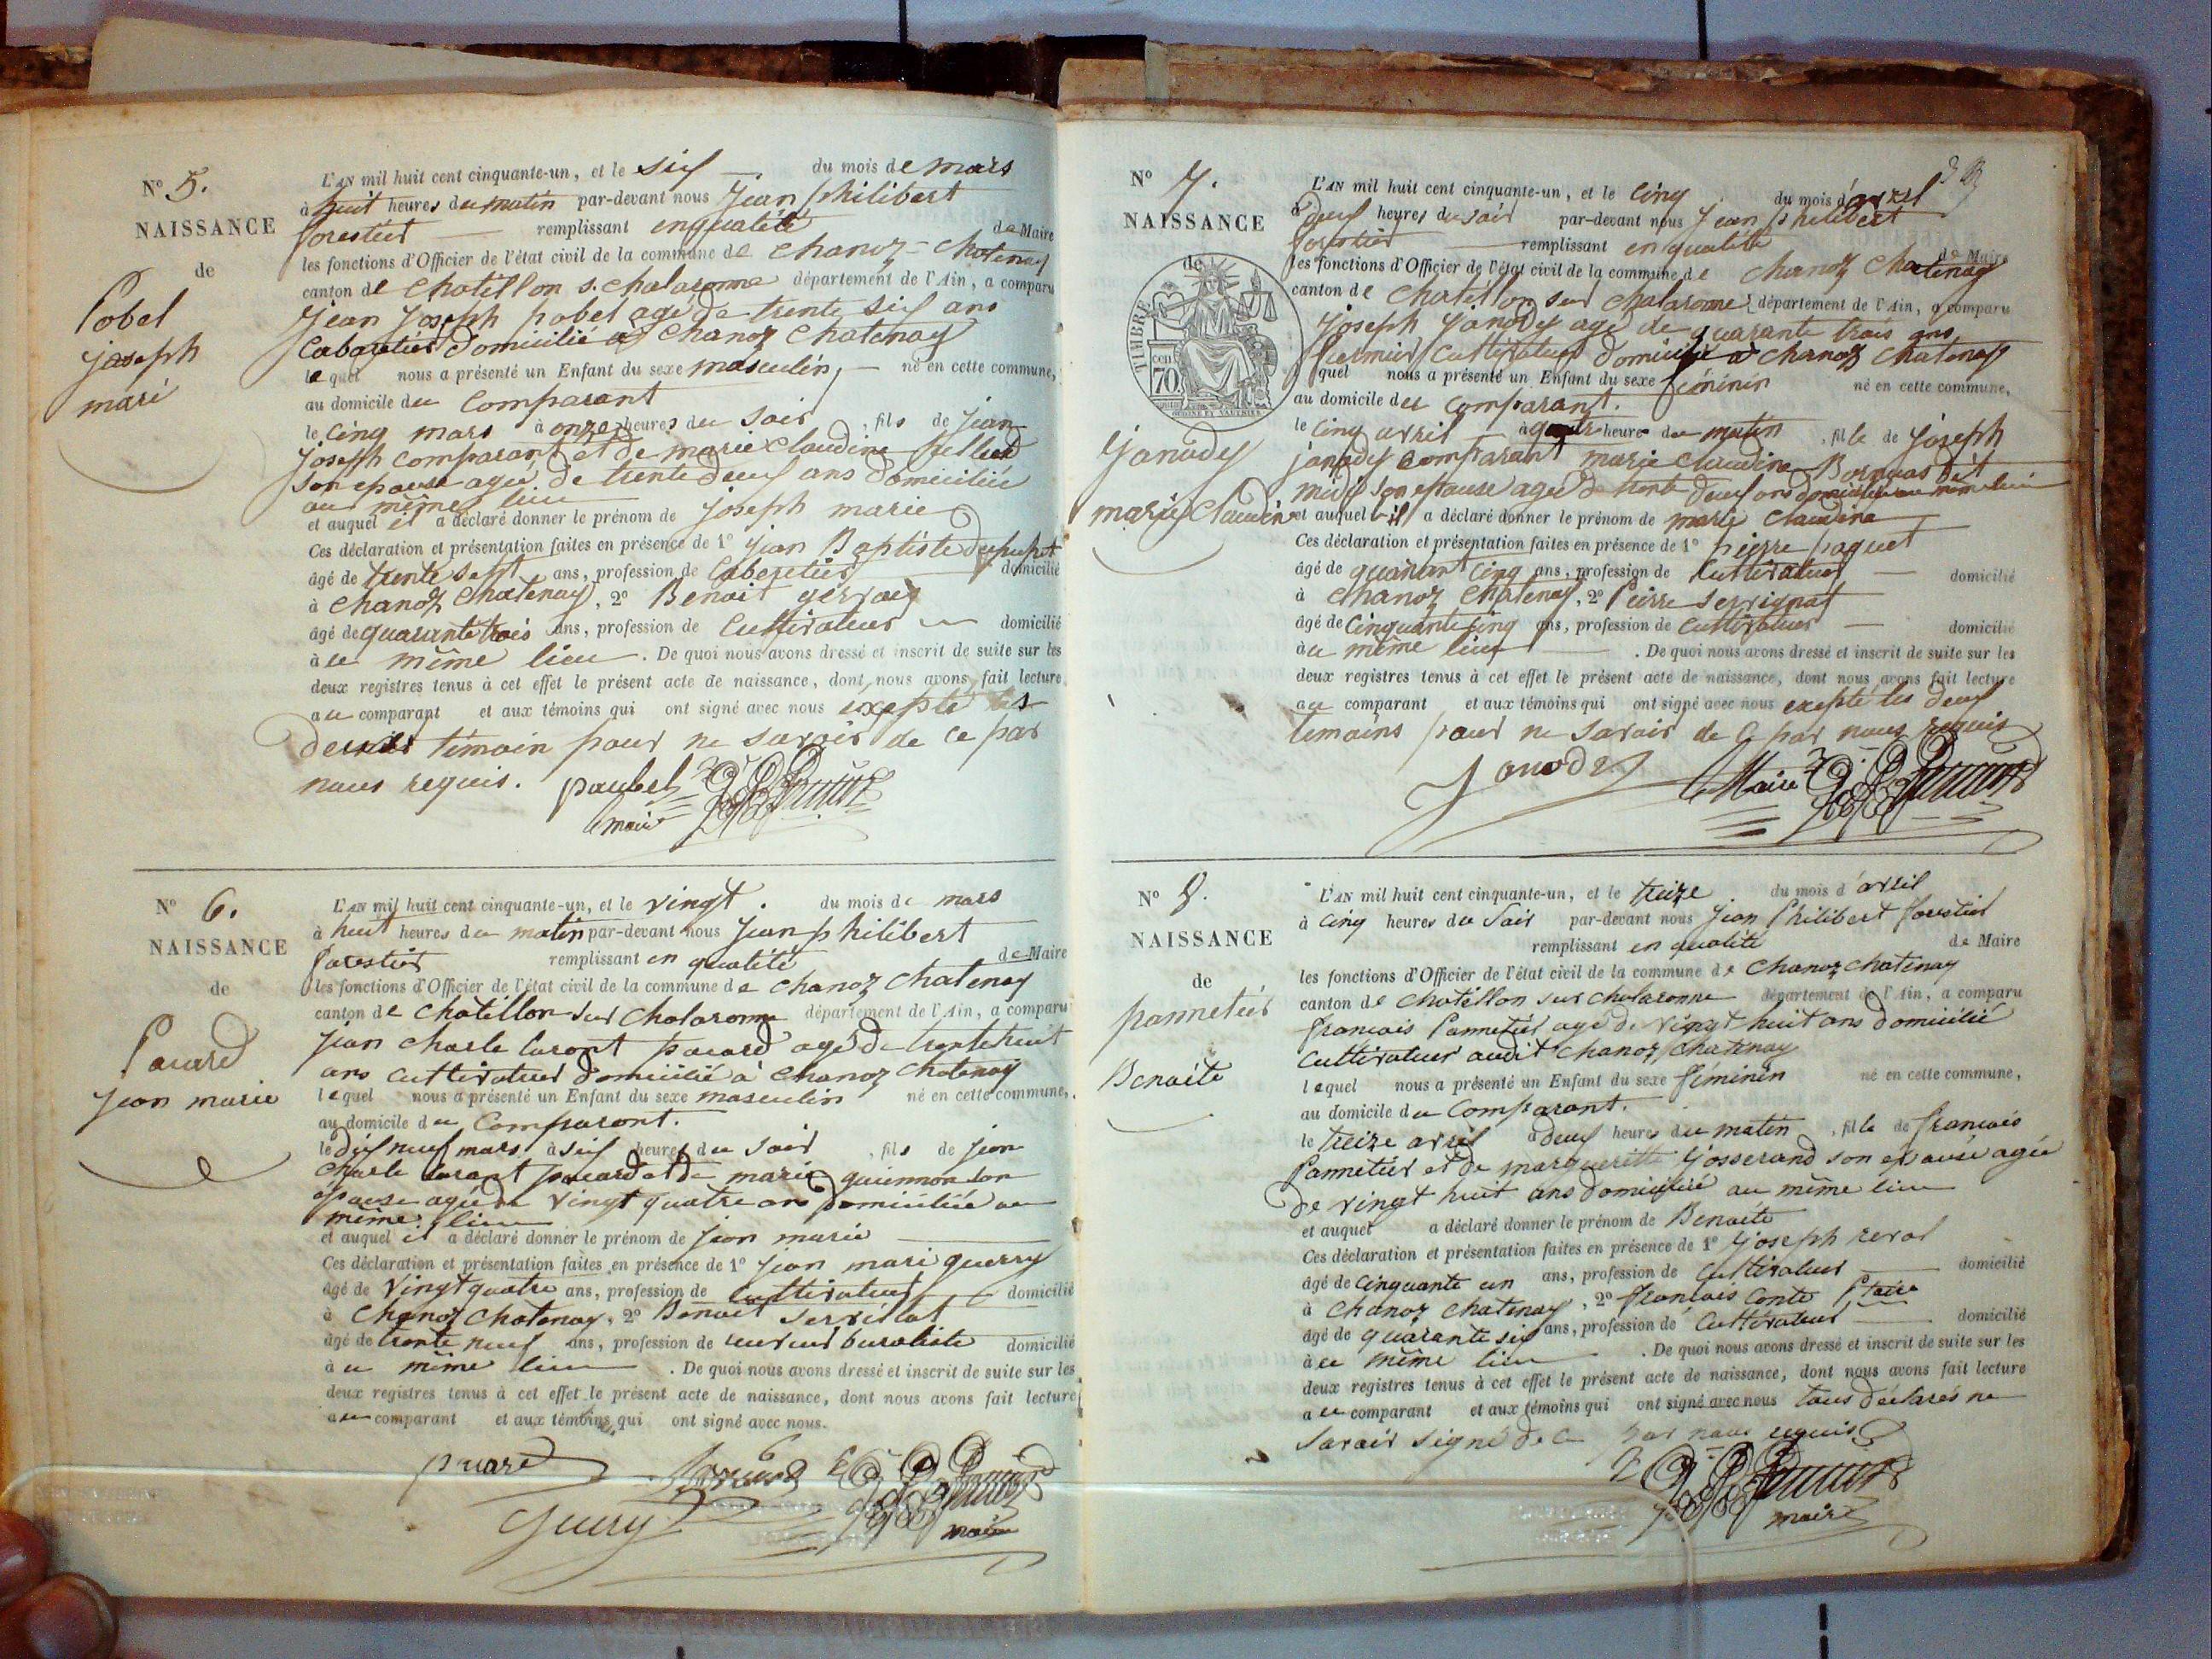 N° 5.
NAISSANCE
de
Pobel
joseph
mari
L'AN mil huit cent cinquante-un, et le six du mois de mars
à huit heures du matin par-devant nous Jean philibert
forestier remplissant en qualité de Maire
les fonctions d'Officier de l'état civil de la commune de chanoz-chatenay
canton de chatillon s. chalaronne département de l'Ain, a comparu
Jean Joseph pobel agé de trente six ans
Cabaretier domicilié à chanoz chatenay
lequel nous a présenté un Enfant du sexe masculin, né en cette commune,
au domicile du comparant
le cinq mars à onze heures du soir, fils de jean
joseph comparant et de marie claudine
son epouse agée de trente deux ans domiciliée
au même lieu
et auquel il a déclaré donner le prénom de joseph marie
Ces déclaration et présentation faites en présence de 1° jean Baptiste
âgé de trente sept ans, profession de Cabaretier domicilié
à chanoz chatenay, 2° Benoit gervais
âgé de quarante trois ans, profession de Cultivateur domicilié
au même lieu. De quoi nous avons dressé et inscrit de suite sur les
deux registres tenus à cet effet le présent acte de naissance, dont nous avons fait lecture
au comparant et aux témoins qui ont signé avec nous excepté les
témoin pour ne savoir de ce par
nous requis. paubel
maire
N° 6.
NAISSANCE
de
Pacard
Jean marie
L'AN mil huit cent cinquante-un, et le vingt. du mois de mars
à huit heures du matin par-devant nous Jean philibert
forestier remplissant en qualité de Maire
les fonctions d'Officier de l'état civil de la commune de chanoz chatenay
canton de chatillon sur chalaronne département de l'Ain, a comparu
Jean charle pacard agé de trente huit
ans cultivateur domicilié à chanoz chatenay
lequel nous a présenté un Enfant du sexe masculin né en cette commune,
au domicile du Comparant.
le dix neuf mars à six heures du soir, fils de jean
charle pacard et de marie son
épouse agée de vingt quatre ans domiciliée au
même lieu
et auquel il a déclaré donner le prénom de jean marie
Ces déclaration et présentation faites en présence de 1° jean mari guerry
âgé de vingt quatre ans, profession de cultivateur domicilié
à chanoz chatenay, 2° Benoit
âgé de trente neuf ans, profession de buraliste domicilié
au même lieu. De quoi nous avons dressé et inscrit de suite sur les
deux registres tenus à cet effet le présent acte de naissance, dont nous avons fait lecture
au comparant et aux témoins qui ont signé avec nous.
pacard
Guerry maire
N° 7.
NAISSANCE
de
TIMBRE
CEN
70
Janody
marie Claudine
L'AN mil huit cent cinquante-un, et le cinq du mois d'avril
à deux heures du soir par-devant nous Jean philibert
forestier remplissant en qualité de Maire
les fonctions d'Officier de l'état civil de la commune de chanoz chatenay
canton de chatillon sur chalaronne département de l'Ain, a comparu
joseph janody agé de quarante trois ans
fermier cultivateur domicilié à chanoz chatenay
quel nous a présenté un Enfant du sexe féminin né en cette commune,
au domicile du comparant.
le cinq avril à quatre heures du matin, fille de joseph
janody comparant marie claudine
son epouse agée de trente deux ans domiciliée au même lieu
et auquel il a déclaré donner le prénom de marie claudine
Ces déclaration et présentation faites en présence de 1° pierre paquet
âgé de quarant cinq ans, profession de Cultivateur domicilié
à chanoz chatenay, 2° Peirre servignat
âgé de cinquante cinq ans, profession de cultivateur domicilié
au même lieu. De quoi nous avons dressé et inscrit de suite sur les
deux registres tenus à cet effet le présent acte de naissance, dont nous avons fait lecture
au comparant et aux témoins qui ont signé avec nous excepté les deux
temoins pour ne savoir de ce par nous requis
Janody Maire
N° 8.
NAISSANCE
de
pannetier
Benoite
L'AN mil huit cent cinquante-un, et le treize du mois d'avril
à cinq heures du soir par-devant nous jean Philibert forestier
remplissant en qualité de Maire
les fonctions d'Officier de l'état civil de la commune de chanoz chatenay
canton de chatillon sur chalaronne département de l'Ain, a comparu
francois Pannetier agé de vingt huit ans domicilié
cultivateur audit chanoz chatenay
lequel nous a présenté un Enfant du sexe féminin né en cette commune,
au domicile du comparant.
le treize avril à deux heures du matin, fille de francois
Pannetier et de margueritte josserand son epouse agée
de vingt huit ans domiciliée au même lieu
et auquel a déclaré donner le prénom de Benoite
Ces déclaration et présentation faites en présence de 1° joseph reval
âgé de cinquante un ans, profession de cultivateur domicilié
à chanoz chatenay, 2° francois Conte
âgé de quarante six ans, profession de Cultivateur domicilié
au même lieu. De quoi nous avons dressé et inscrit de suite sur les
deux registres tenus à cet effet le présent acte de naissance, dont nous avons fait lecture
au comparant et aux témoins qui ont signé avec nous tous déclarés ne
savoir signé de ce par nous requis
maire